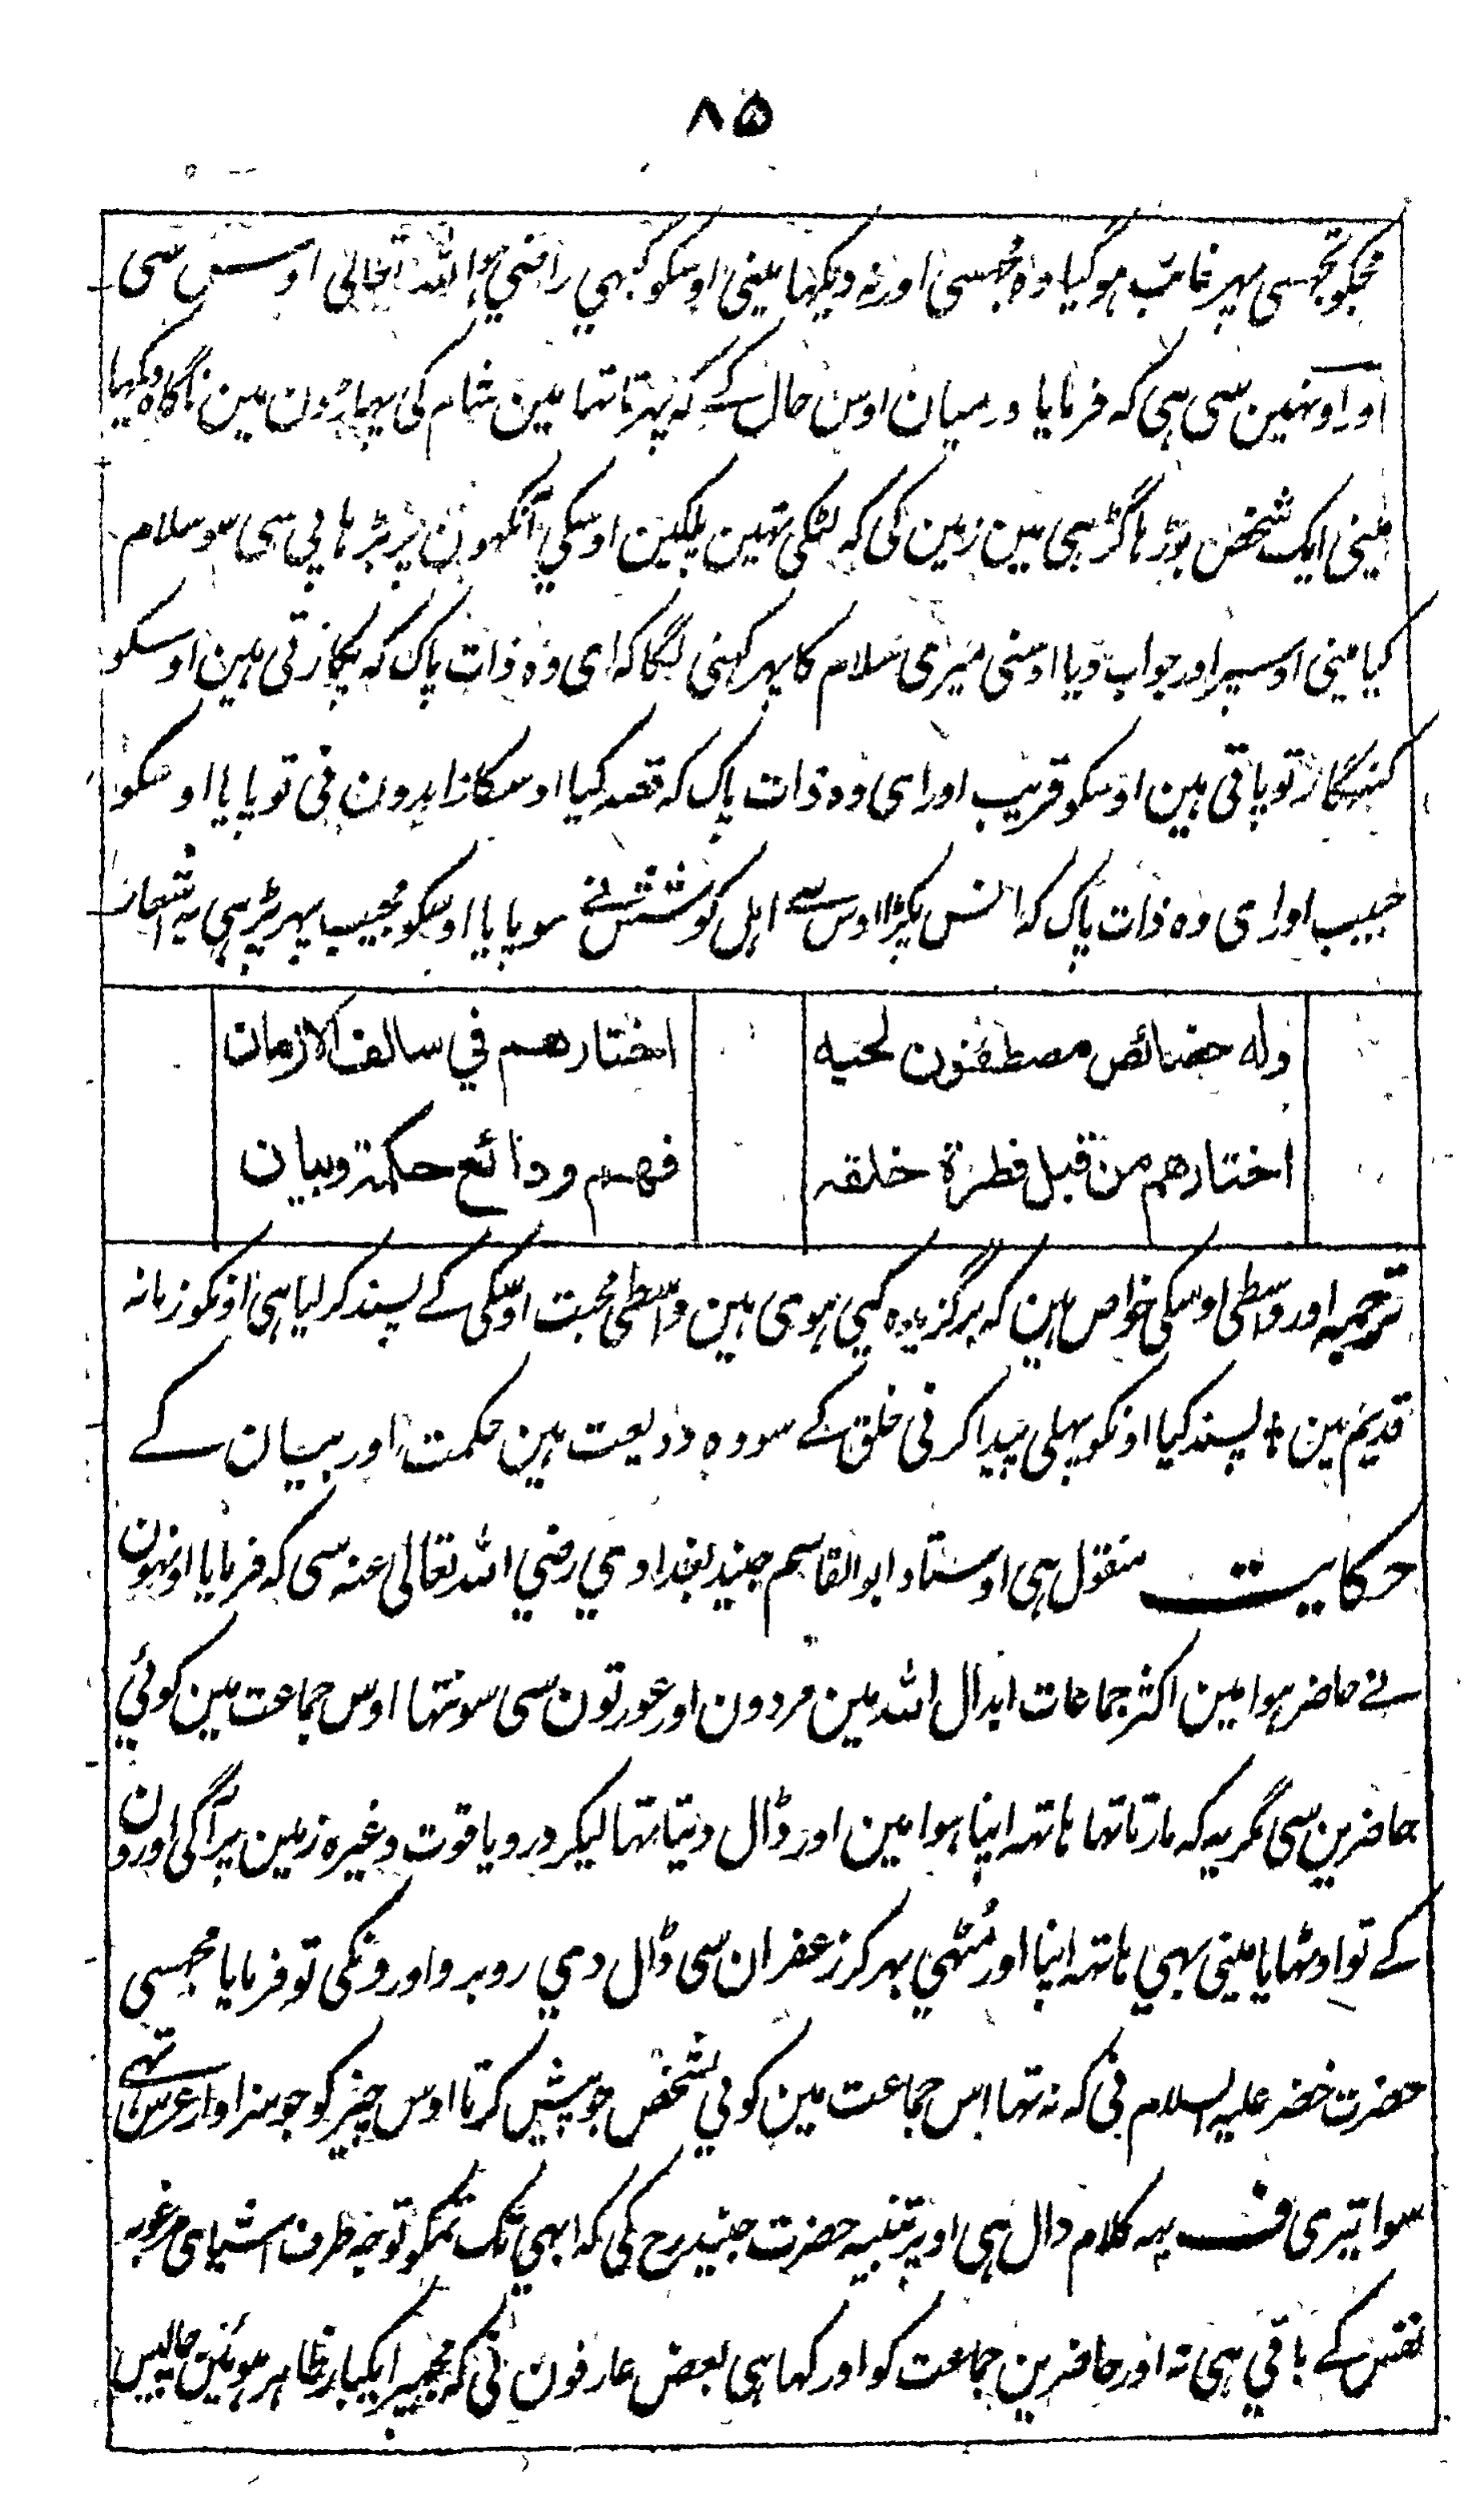 ۸۵
مجکو تجھسی پہر غائب ہوگیا وہ مجھسی اور نہ دیکھا مینی اوسکو کبہی راضي ہو اللہ تعالی اوس سی
اور اونہین سی ہی کہ فرمایا درمیان اوس حال کے کہ پہرتا تہا مین شام کی پہاڑون مین ناگاہ دیکہا
مینی ایک شخص بوڑہا گڑہی مین زمین کی کہ لٹکی تہین پلکین اوسکي آنکہون پر بڑہاپي سی سو سلام
کیا مینی اوسپر اور جواب دیا اوسنی میری سلام کا پہر کہنی لگا کہ ای وہ ذات پاک کہ پکارتی ہین اوسکو
گنہگار تو پاتی ہین اوسکو قریب اور ای وہ ذات پاک کہ قصد کیا اوسکا زاہدون نی تو پایا اوسکو
حبیب اور ای وہ ذات پاک کہ انس پکڑا اوس سے اہل کوشش نے سو پایا اوسکو مجیب پہر پڑہی یہ اشعار
وله خصائص مصطفون لحبه اختارهم في سالف الازمان
اختارهم من قبل فطرة خلقه فهم ودائع حكمة وبيان
ترجمہ اور واسطی اوسکی خواص ہین کہ برگزیدہ کیی ہوی ہین واسطی محبت اوسکی کے پسند کر لیا ہی اونکو زمانہ
قدیم مین + پسند کیا اونکو پہلی پیدا کرنی خلق کے سو وہ ودیعت ہین حکمت اور بیان کے
حکایت منقول ہی اوستاد ابوالقاسم جنید بغدادي رضي اللہ تعالی عنہ سی کہ فرمایا اونہون
نے حاضر ہوا مین اکثر جماعات ابدال اللہ مین مردون اور عورتون سی سو نتہا اوس جماعت مین کوئي
حاضرین سی مگر یہ کہ مارتا تہا ہاتہہ اپنا ہوا مین اور ڈال دیتا تہا لیکر در و یاقوت وغیرہ زمین پر آگی اورون
کے تو اوٹہایا مینی بہي ہاتہہ اپنا اور مُٹہي بہر کر زعفران سی ڈال دي روبرو اورونکی تو فرمایا مجہسی
حضرت خضر علیہ السلام نی کہ نہ تہا اس جماعت مین کوئي شخص جو پیش کرتا اوس چیز کو جو سزاوار عرس تہی
سوا تیری ف یہہ کلام دال ہی اوپر تنبیہ حضرت جنید رح کی کہ ابہي تک تمکو توجہ طرف اشیای مرغوبہ
نفس کے باقي ہی نہ اور حاضرین جماعت کو اور کہا ہی بعض عارفون نی کہ مجہپر ایکبار ظاہر ہوئین چالیس